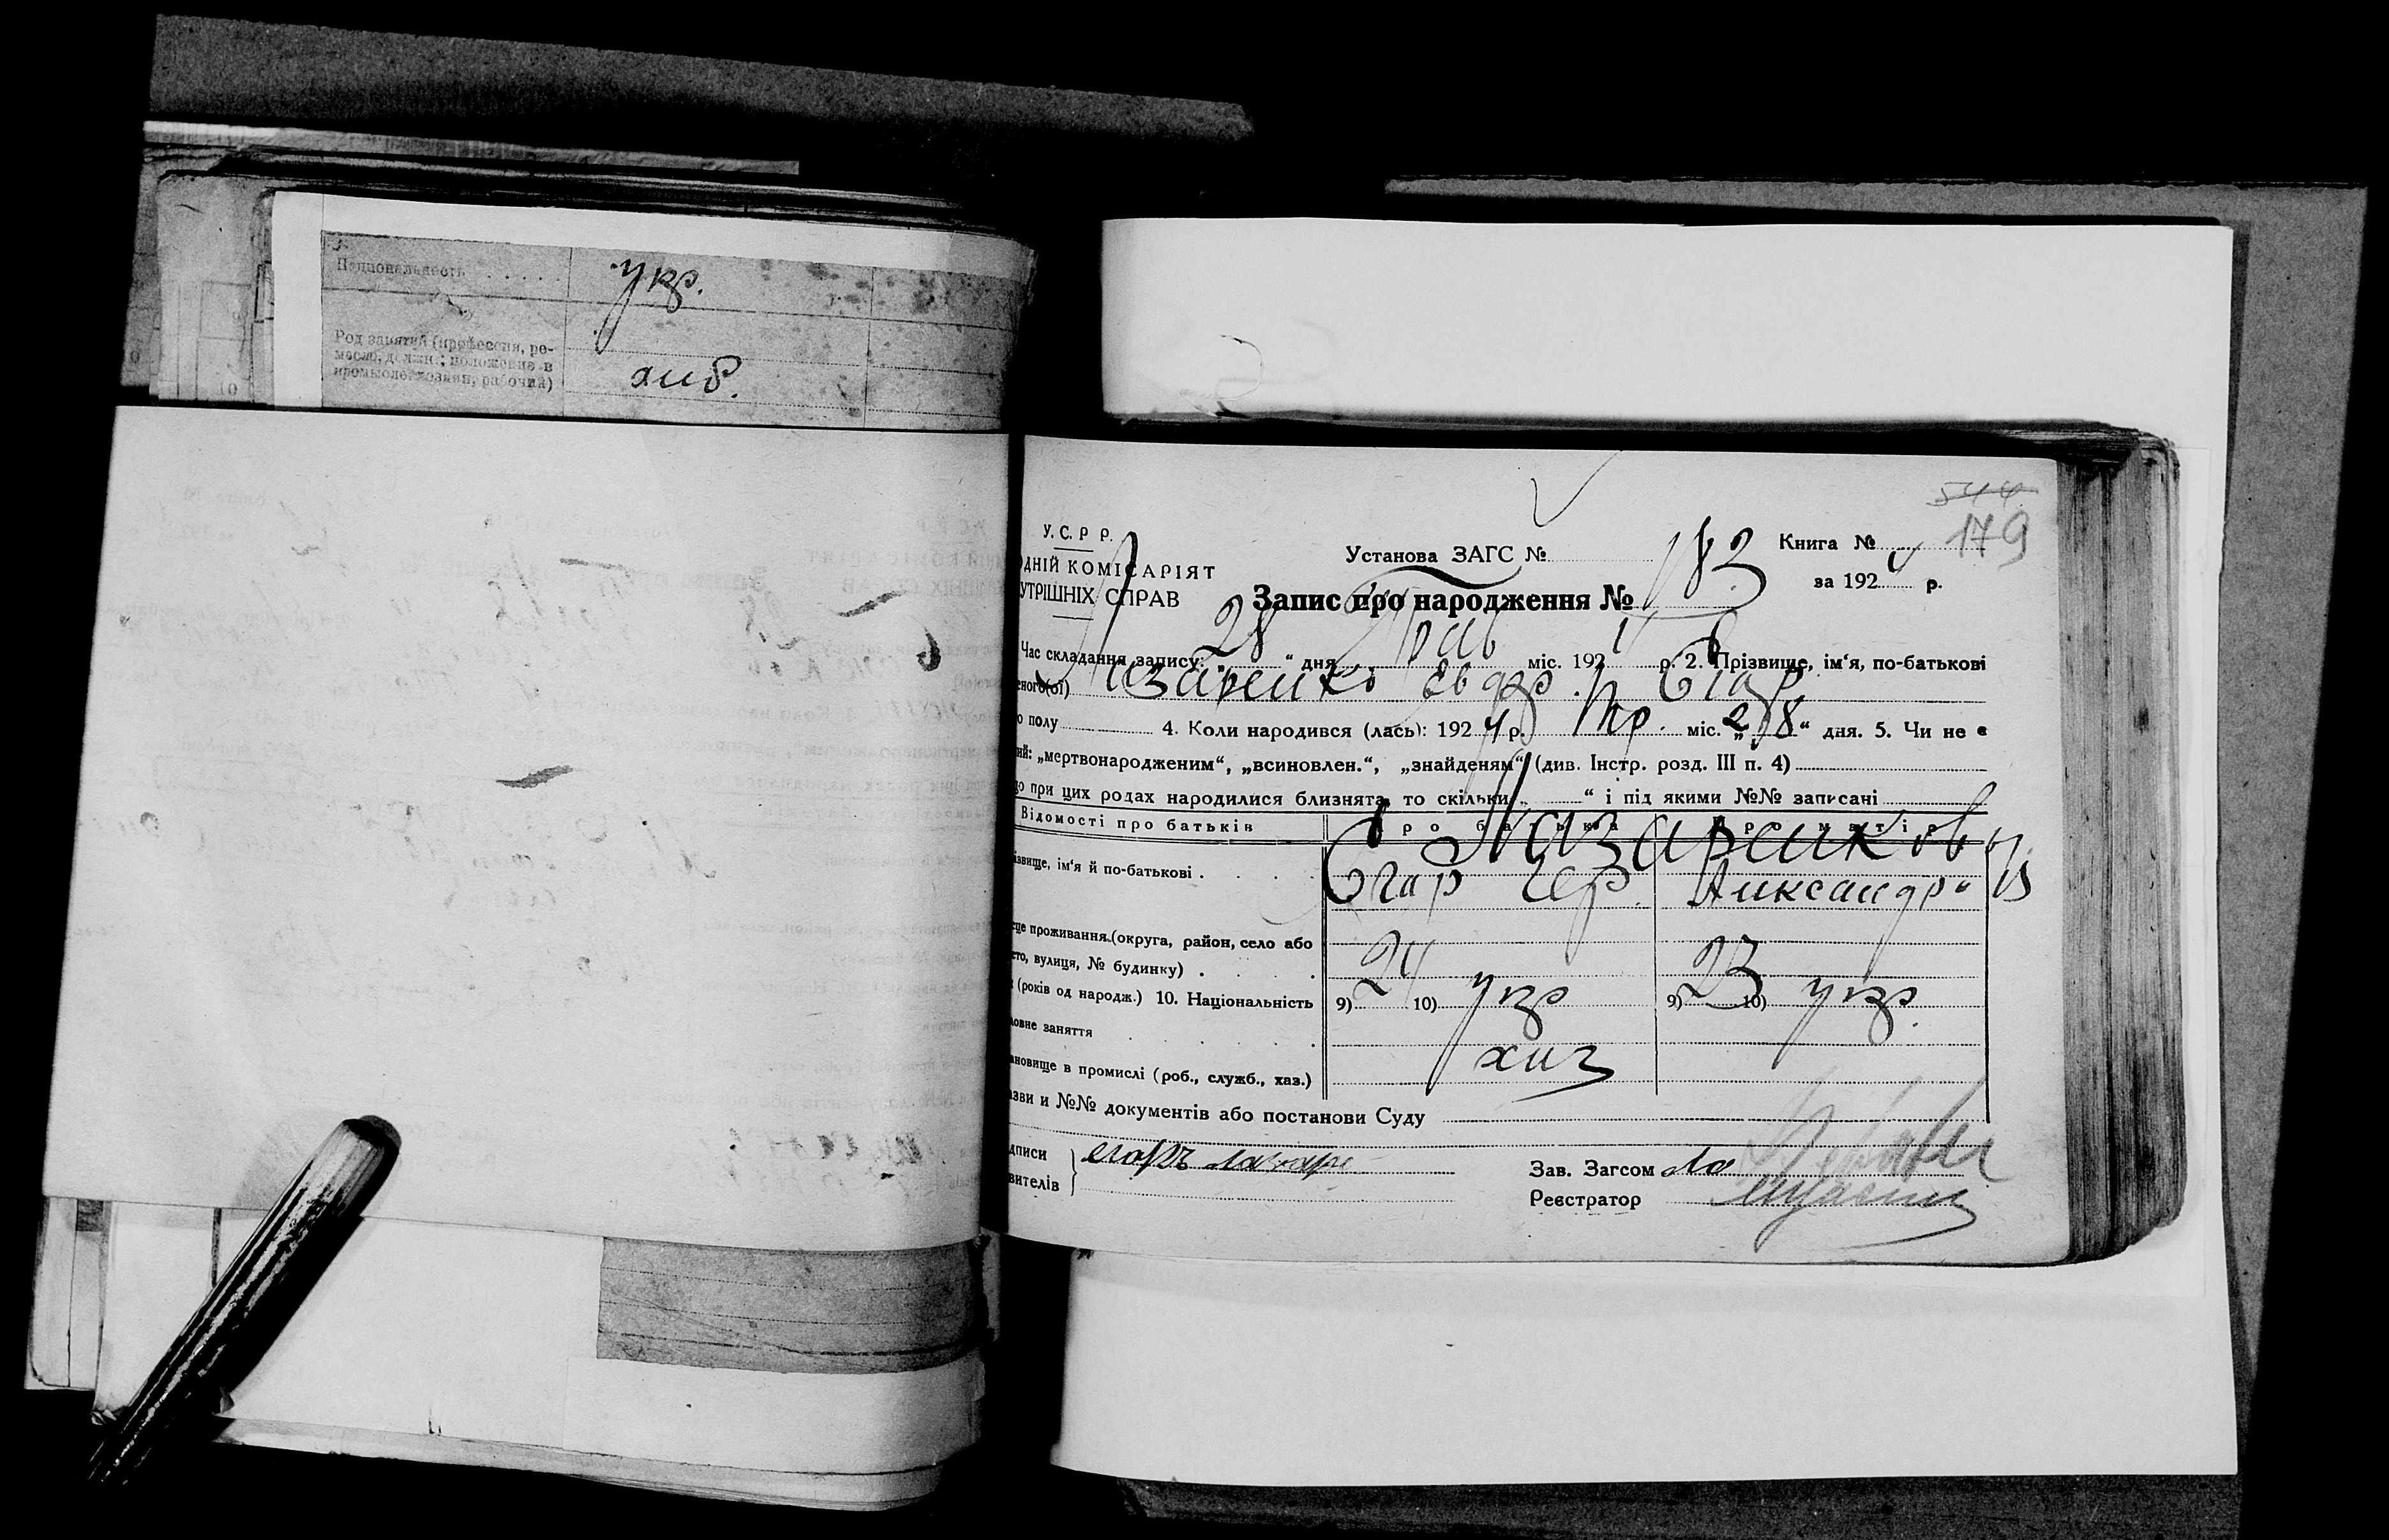 Национальность
укр.
Род занятий (профессия, ре-
месло, должн.; положение в
хлib.
544
179
У. С. Р Р.
ДНІЙ КОМІСАРІЯТ
УТРІШНІХ СПРАВ
Установа ЗАГС №
Книга №
за 192 р.
Запис про народження № 182
Час складання запису: „ 28 “ дня міс. 192 р. 2. Прізвище, ім‘я, по-батькові
еного(ої) Лазаренко Євдок. Єгор.
о полу 4. Коли народився (лась): 1924 р. міс. „ 28 “ дня. 5. Чи не є
ий: „мертвонародженим“, „всиновлен.“, „знайденям“ (див. Інстр. розд. III п. 4)
що при цих родах народилися близнята, то скільки „ “ і під якими №№ записані
Відомості про батьків Про батька Про матір
ізвище, ім‘я й по-батькові Лазаренкові
Єгор Александра
сце проживання (округа, район, село або
сто, вулиця, № будинку)
(років од народж.) 10. Національність 9) 24 10) укр 9) 23 10) укр.
ловне заняття
ановище в промислі (роб., служб., хаз.)
азви и №№ документів або постанови Суду
дписи Егоръ Лазаре
вителів
Зав. Загсом
Реєстратор